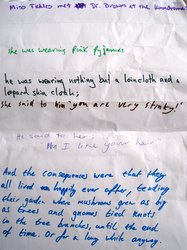 Miss Tickles met Dr. Brown at the
She was wearing Pink Pyjamas
he was wearing nothing but a loincloth and a
leopard skin cloth;
She said to him "you are very stinky!"
He said to her;
I like your hair
And the consequences were that they
all lived happily ever after, tending
their garden where mushrooms grew as big
as trees and gnomes tied knots
in the tree branches, until the end
of time. Or for a long while anyway.